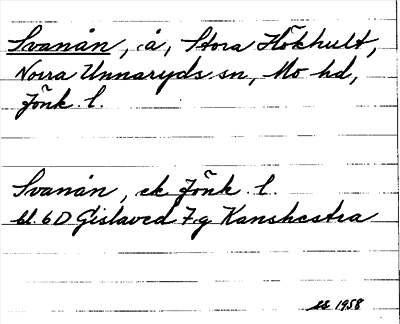 Svanån, å, Stora Hökhult,
Norra Unnaryds sn, Mo hd,
Jönk. l.
Svanån, ek Jönk. l.
bl. 6D Gislaved 7g Kanshestra
1958